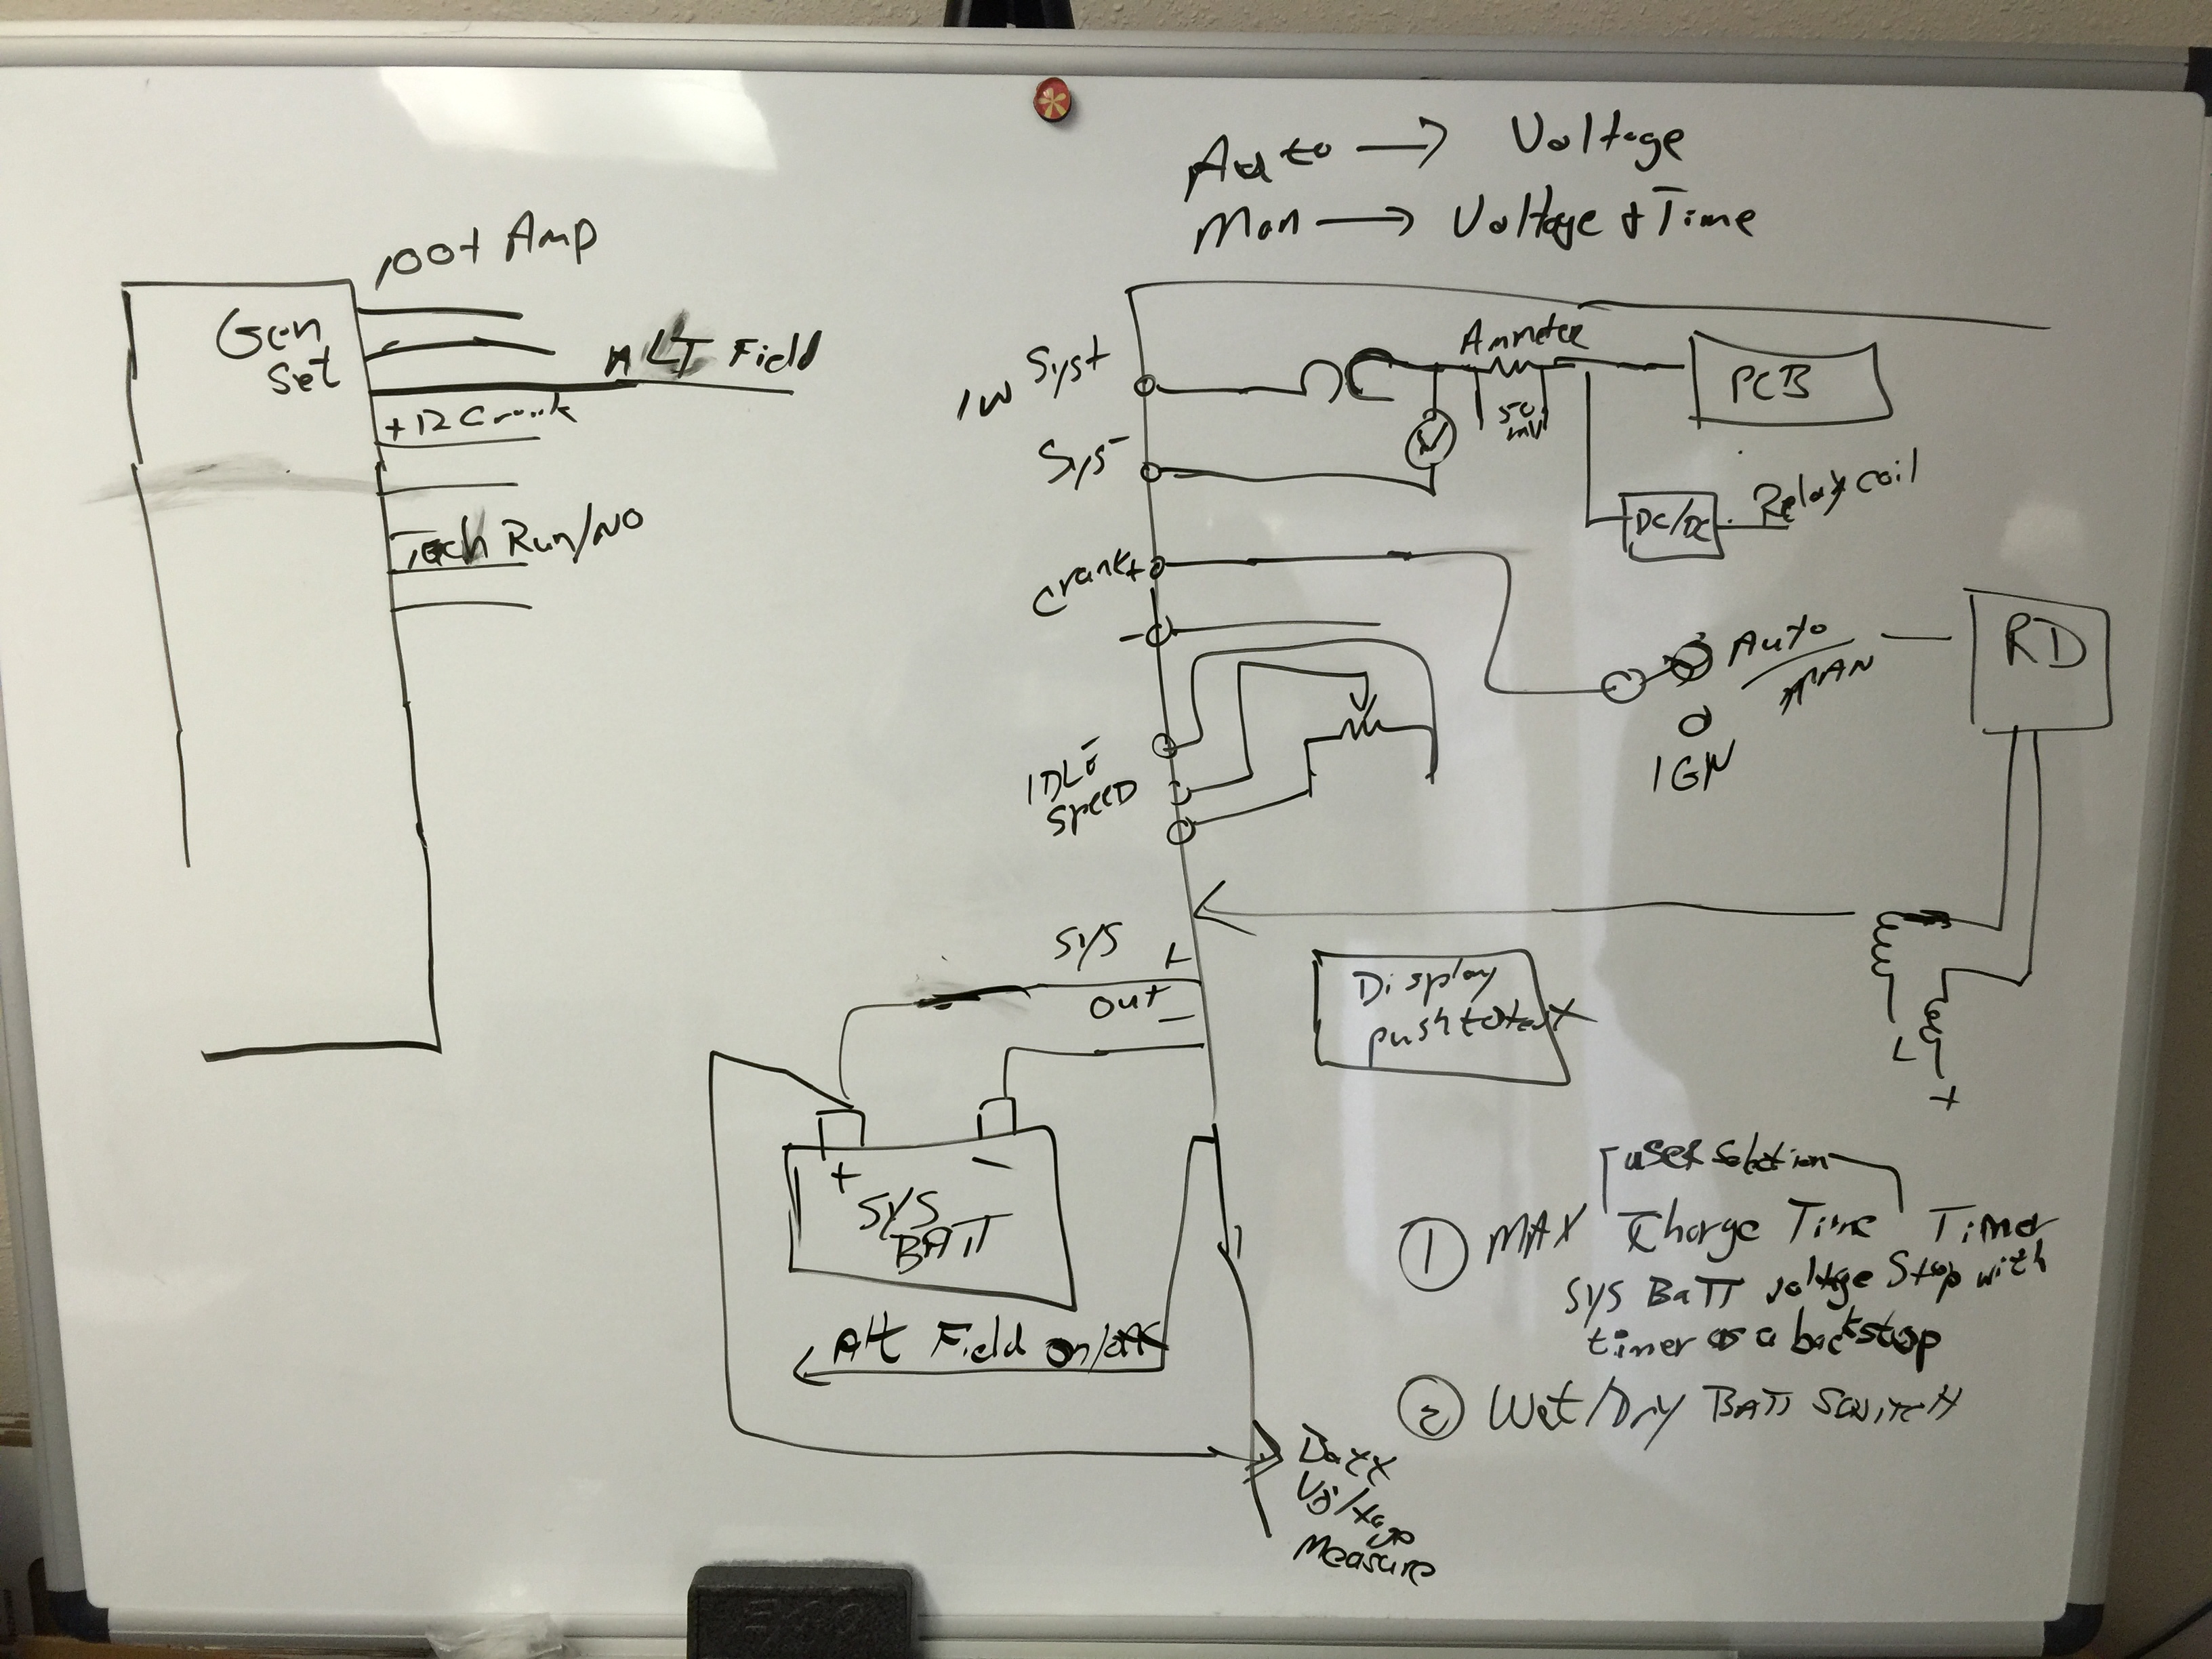 Auto → Voltage
Man → Voltage & Time
100+ Amp
Gen
Set
ALT Field
+12 Crank
Tach Run/NO
Syst
IN
Sys -
Ammeter
50
mV
V
PCB
DC/DC
Relay coil
Crank +
-
Auto
MAN
IGN
RD
IDLE
SPEED
SYS +
out -
Display
push to test
L
+
+ -
SYS
BATT
Alt Field on/off
Batt
Voltage
Measure
user selection
① MAX Charge Time Timer
SYS BaTT voltage Stop with
timer as a backstop
② Wet/Dry BATT SWITCH
EXPO